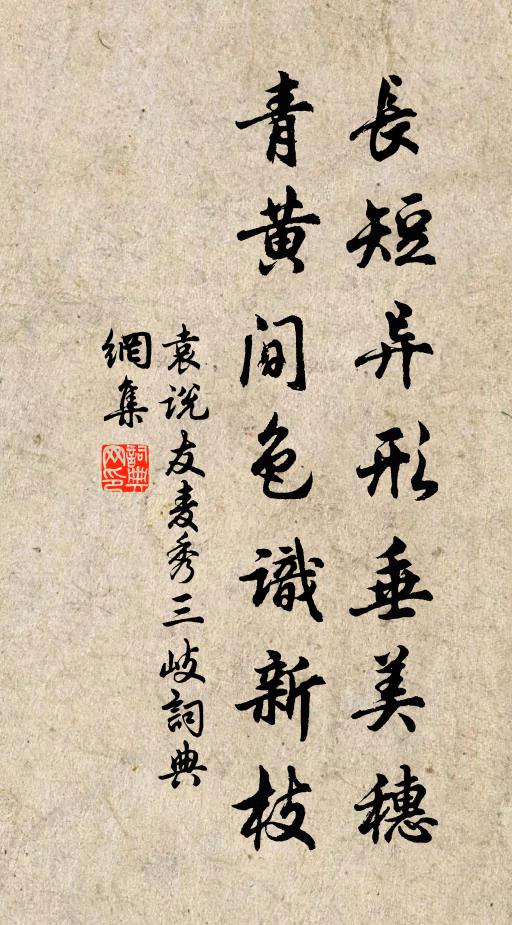 長短异形垂美穗
青黄間色識新枝
袁说友麦秀三岐詞典
網集
詞典
网印